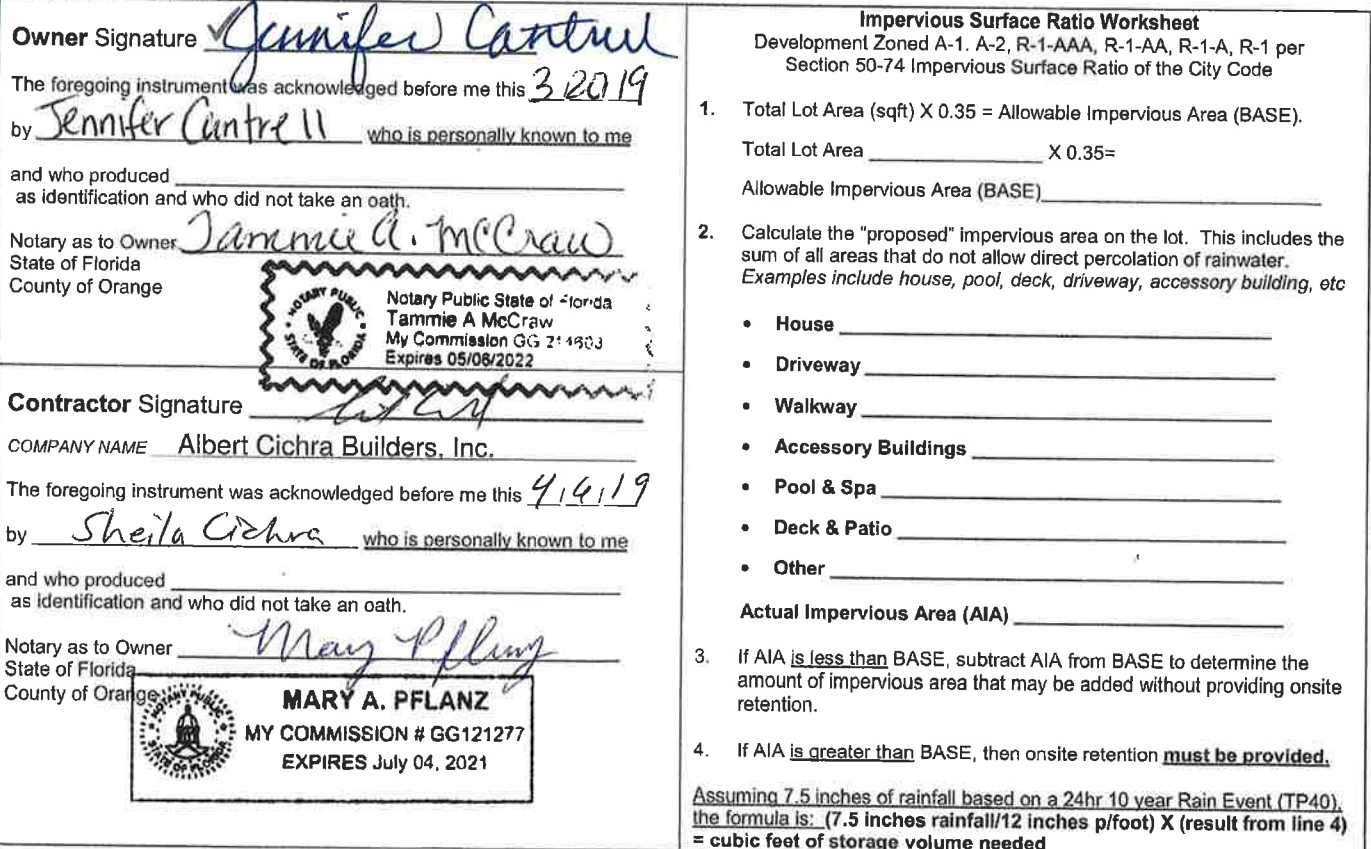 Owner Signature Jennifer Cantrell
The foregoing instrument was acknowledged before me this 3/20/19
by Jennifer Cantrell who is personally known to me
and who produced
as identification and who did not take an oath.
Notary as to Owner Tammie A. McCraw
State of Florida
County of Orange
NOTARY PUBLIC
STATE OF FLORIDA
Notary Public State of Florida
Tammie A McCraw
My Commission GG
Expires 05/06/2022
Contractor Signature
COMPANY NAME Albert Cichra Builders, Inc.
The foregoing instrument was acknowledged before me this 4/6/19
by Sheila Cichra who is personally known to me
and who produced
as identification and who did not take an oath.
Notary as to Owner Mary Pflanz
State of Florida
County of Orange
NOTARY PUBLIC
STATE OF FLORIDA
MARY A. PFLANZ
MY COMMISSION # GG121277
EXPIRES July 04, 2021
Impervious Surface Ratio Worksheet
Development Zoned A-1. A-2, R-1-AAA, R-1-AA, R-1-A, R-1 per
Section 50-74 Impervious Surface Ratio of the City Code
1. Total Lot Area (sqft) X 0.35 = Allowable Impervious Area (BASE).
Total Lot Area X 0.35=
Allowable Impervious Area (BASE)
2. Calculate the "proposed" impervious area on the lot. This includes the
sum of all areas that do not allow direct percolation of rainwater.
Examples include house, pool, deck, driveway, accessory building, etc
• House
• Driveway
• Walkway
• Accessory Buildings
• Pool & Spa
• Deck & Patio
• Other
Actual Impervious Area (AIA)
3. If AIA is less than BASE, subtract AIA from BASE to determine the
amount of impervious area that may be added without providing onsite
retention.
4. If AIA is greater than BASE, then onsite retention must be provided.
Assuming 7.5 inches of rainfall based on a 24hr 10 year Rain Event (TP40),
the formula is: (7.5 inches rainfall/12 inches p/foot) X (result from line 4)
= cubic feet of storage volume needed